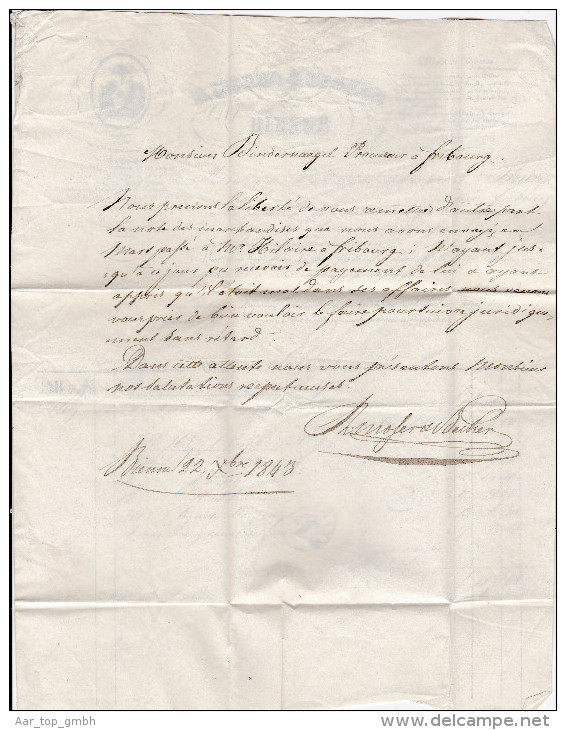 Monsieur Bindernaegel Procureur à fribourg.
Nous prenons la liberté de vous remettre d'autre part
la note des marchandises que nous avons envoyé en
Mars passé à Mr. Hilaire à fribourg; N'ayant jus-
qu'à ce jour pu recevoir de payement de lui & ayant
appris qu'il était mal dans ses affaires, nous venons
vous prier de bien vouloir le faire poursuivre juridique-
ment sans retard.
Dans cette attente nous vous présentons Monsieur
nos salutations respectueuses
Bienne 22 Xbre 1843
Aar_top_gmbh
www.delcampe.net